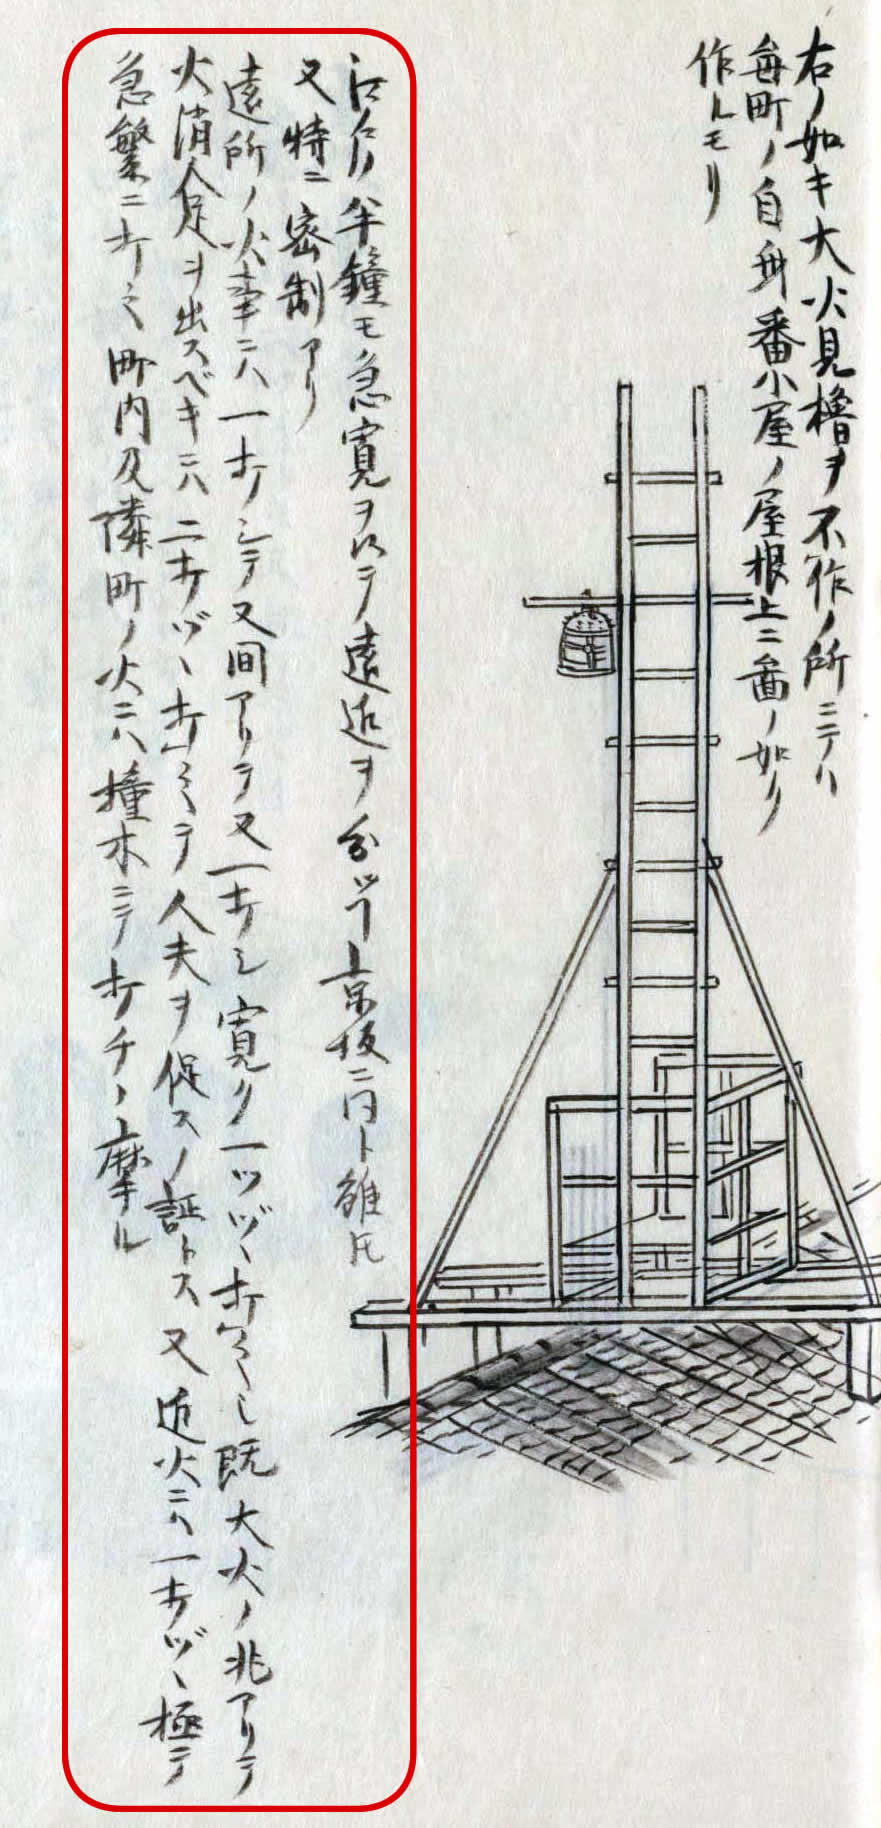 右ノ如キ大火見櫓ヲ不作ノ所ニテハ
毎町ノ自身番小屋ノ屋根上ニ図ノ如ク
作ルモアリ
江戸ノ半鐘モ急寛ヲ以テ遠近ヲ分ツヿ京坂ニ同ト雖𪜈
又特ニ密制アリ
遠所ノ火事ニハ一打シテ又間アリテ又一打シ寛ク一ツヅヽ打ツ也既大火ノ兆アリテ
火消人足ヲ出スベキニハ二打ヅヽ打テ人夫ヲ促スノ証トス又近火ニハ一打ヅヽ極テ
急繁ニ打之町内及隣町ノ火ニハ撞木ニテ打チ摩キル